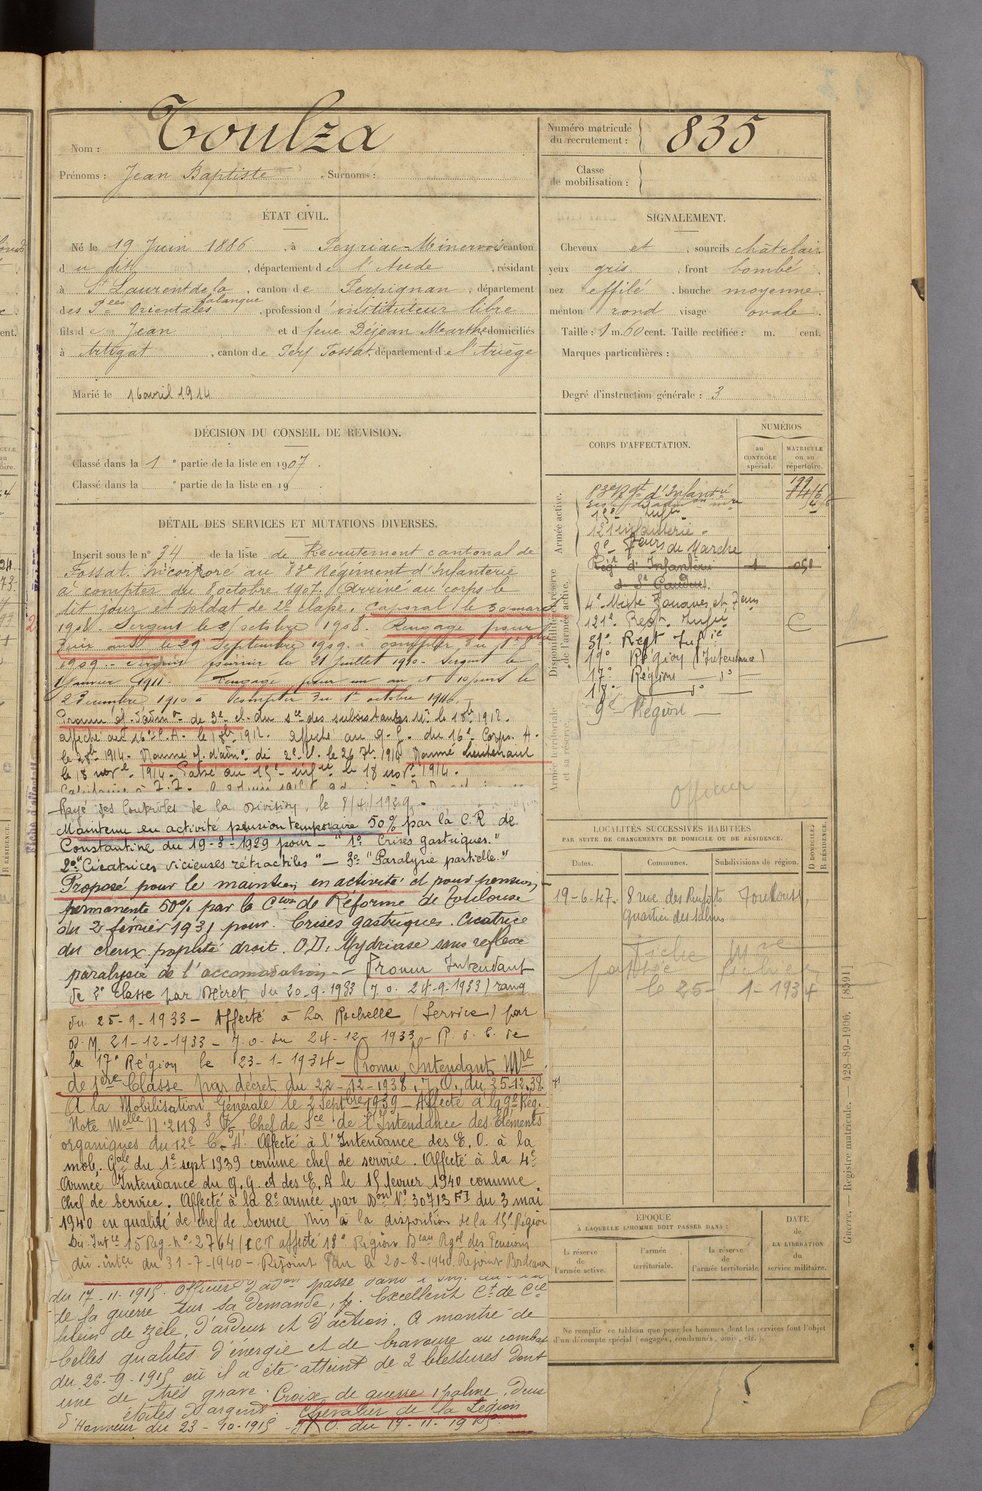 Nom : Toulza
Prénoms : Jean Baptiste . Surnoms :
Numéro matricule du recrutement : 835
Classe de mobilisation :
ÉTAT CIVIL.
Né le 19 Juin 1886 , à Peyriac-Minervois canton
du dit , département de l'Aude , résidant
à St Laurent de la Salanque , canton de Perpignan , département
des P.ées Orientales , profession d'instituteur libre
fils de Jean et de feue Dejean Marthe domiciliés
à Artigat , canton de Fossat département de l'Ariège
Marié le 16 avril 1914
SIGNALEMENT.
Cheveux et , sourcils chât clair
yeux gris , front bombé
nez effilé , bouche moyenne
menton rond visage ovale.
Taille : 1 m. 60 cent. Taille rectifiée : m. cent.
Marques particulières :
Degré d'instruction générale : 3
DÉCISION DU CONSEIL DE RÉVISION.
Classé dans la 1e partie de la liste en 1907.
Classé dans la e partie de la liste en 19
DÉTAIL DES SERVICES ET MUTATIONS DIVERSES.
Inscrit sous le n° 24 de la liste de Recrutement cantonal de
Fossat. Incorporé au 83e Régiment d'Infanterie
à compter du 8 octobre 1907. Arrivé au corps le
dit jour et soldat de 2e classe. Caporal le 30 mars
1908. Sergent le octobre 1908. Rengagé pour
ans le 29 Septembre 1909 à compter du 1er 8bre
1909. Sergent fourrier le 21 Juillet 1910. Sergent le
Janvier 1911. Rengagé pour un an et jours le
2 Décembre 1910 à compter du 1er octobre
Promu of. d'admon de 3e cl. du sce des subsistances le 1912.
affecté au 16e C.A. le 1912. affecté au Q.G. du 16e Corps A.
le 1914. Nommé of. d'admon de 2e cl. le 26 7b 1914 Nommé Lieutenant
le 18 novbre 1914. Passé au 15e infrie le 18 novbre 1914.
Rayé des Contrôles de la Division, le 8/4/1929.
Maintenu en activité pension temporaire 50% par la C.R. de
Constantine du 19-3-1929 pour - "1° Crises gastriques."
2° "Cicatrices vicieuses rétractiles" — 3° "Paralysie partielle."
Proposé pour le maintien en activité et pour pension
permanente 50% par la Cion de Réforme de Toulouse
du 2 février 1931 pour. Crises gastriques. Cicatrice
du creux poplité droit. O.D. Mydriase sans reflexe
paralysie de l'accomodation — Promu Intendant
de 2e Classe par Décret du 20-9-1933 (J.O. 24-9-1933) rang
du 25-9-1933 — Affecté à La Rochelle (Service) par
D.M. 21-12-1933 - J.O. du 24-12-1933 -
la 17e Région le 23-1-1934 - Promu Intendant Mre
de 1ère Classe par décret du 22-12-1938, J.O. du 25-12-38
A la Mobilisation Générale le 2 Septbre 1939 - Affecté à la 9e Rég.
Note Melle N° 2118 Chef de Sce de l'Intendance des Eléments
organiques du 12e C.A. Affecté à l'Intendance des E.O. à la
mob. Gale du 1er sept 1939 comme chef de service. Affecté à la 4e
Armée Intendance du Q.G. et des E.A le 15 février 1940 comme
Chef de Service. Affecté à la 8e armée par Don N° 30713 du 3 mai
1940 en qualité de chef de Service Mis à la disposition de la 15e Région
Dir Intce 15 Rég. N° 2764/1 CT affecté 18e Région Beau Rgal des Pensions
dir. intce du 31-7-1940 - Rejoint Pau le 20-8-1940 Rejoint Bordeaux
du 17-11-1915.
de la guerre sur sa demande, Excellent Ct de Cie
plein de zèle, d'ardeur et d'action. A montré de
belles qualités d'énergie et de bravoure au combat
du 26-9-1915 où il a été atteint de 2 blessures dont
une de très grave. Croix de guerre 1 palme, Deux
étoiles d'argent. Chevalier de la Légion
d'Honneur du 23-10-1915 - J.O. du 17-11-1915
CORPS D'AFFECTATION.
NUMÉROS
AU CONTRÔLE spécial.
MATRICULE ou au répertoire.
Armée active.
Disponibilité et réserve de l'armée active.
Armée territoriale et sa réserve.
83e Rgt d'Infanterie
15e Infie
121e infanterie
8e Tirs de Marche
Régt d'Infanterie
de St Gaudens
4e Mixte Zouaves et Tirs
121e Regt. Infie
51e Regt Infie
19e Région (Intendance)
17e Région — do —
18e — do —
9e Région —
Officier
LOCALITÉS SUCCESSIVES HABITÉES
PAR SUITE DE CHANGEMENTS DE DOMICILE OU DE RÉSIDENCE.
Dates. Communes. Subdivisions de région. D DOMICILE. R RÉSIDENCE.
19-6-47. 8 rue des Toulouse
Quartier des
Fiche
le 25-1-1934
ÉPOQUE
À LAQUELLE L'HOMME DOIT PASSER DANS :
la réserve de l'armée active.
l'armée territoriale.
la réserve de l'armée territoriale.
DATE de LA LIBÉRATION du service militaire.
Ne remplir ce tableau que pour les hommes dont les services font l'objet
d'un décompte spécial (engagés, condamnés, omis, etc.).
Guerre. — Registre matricule. — 428-89-1906. [8591]